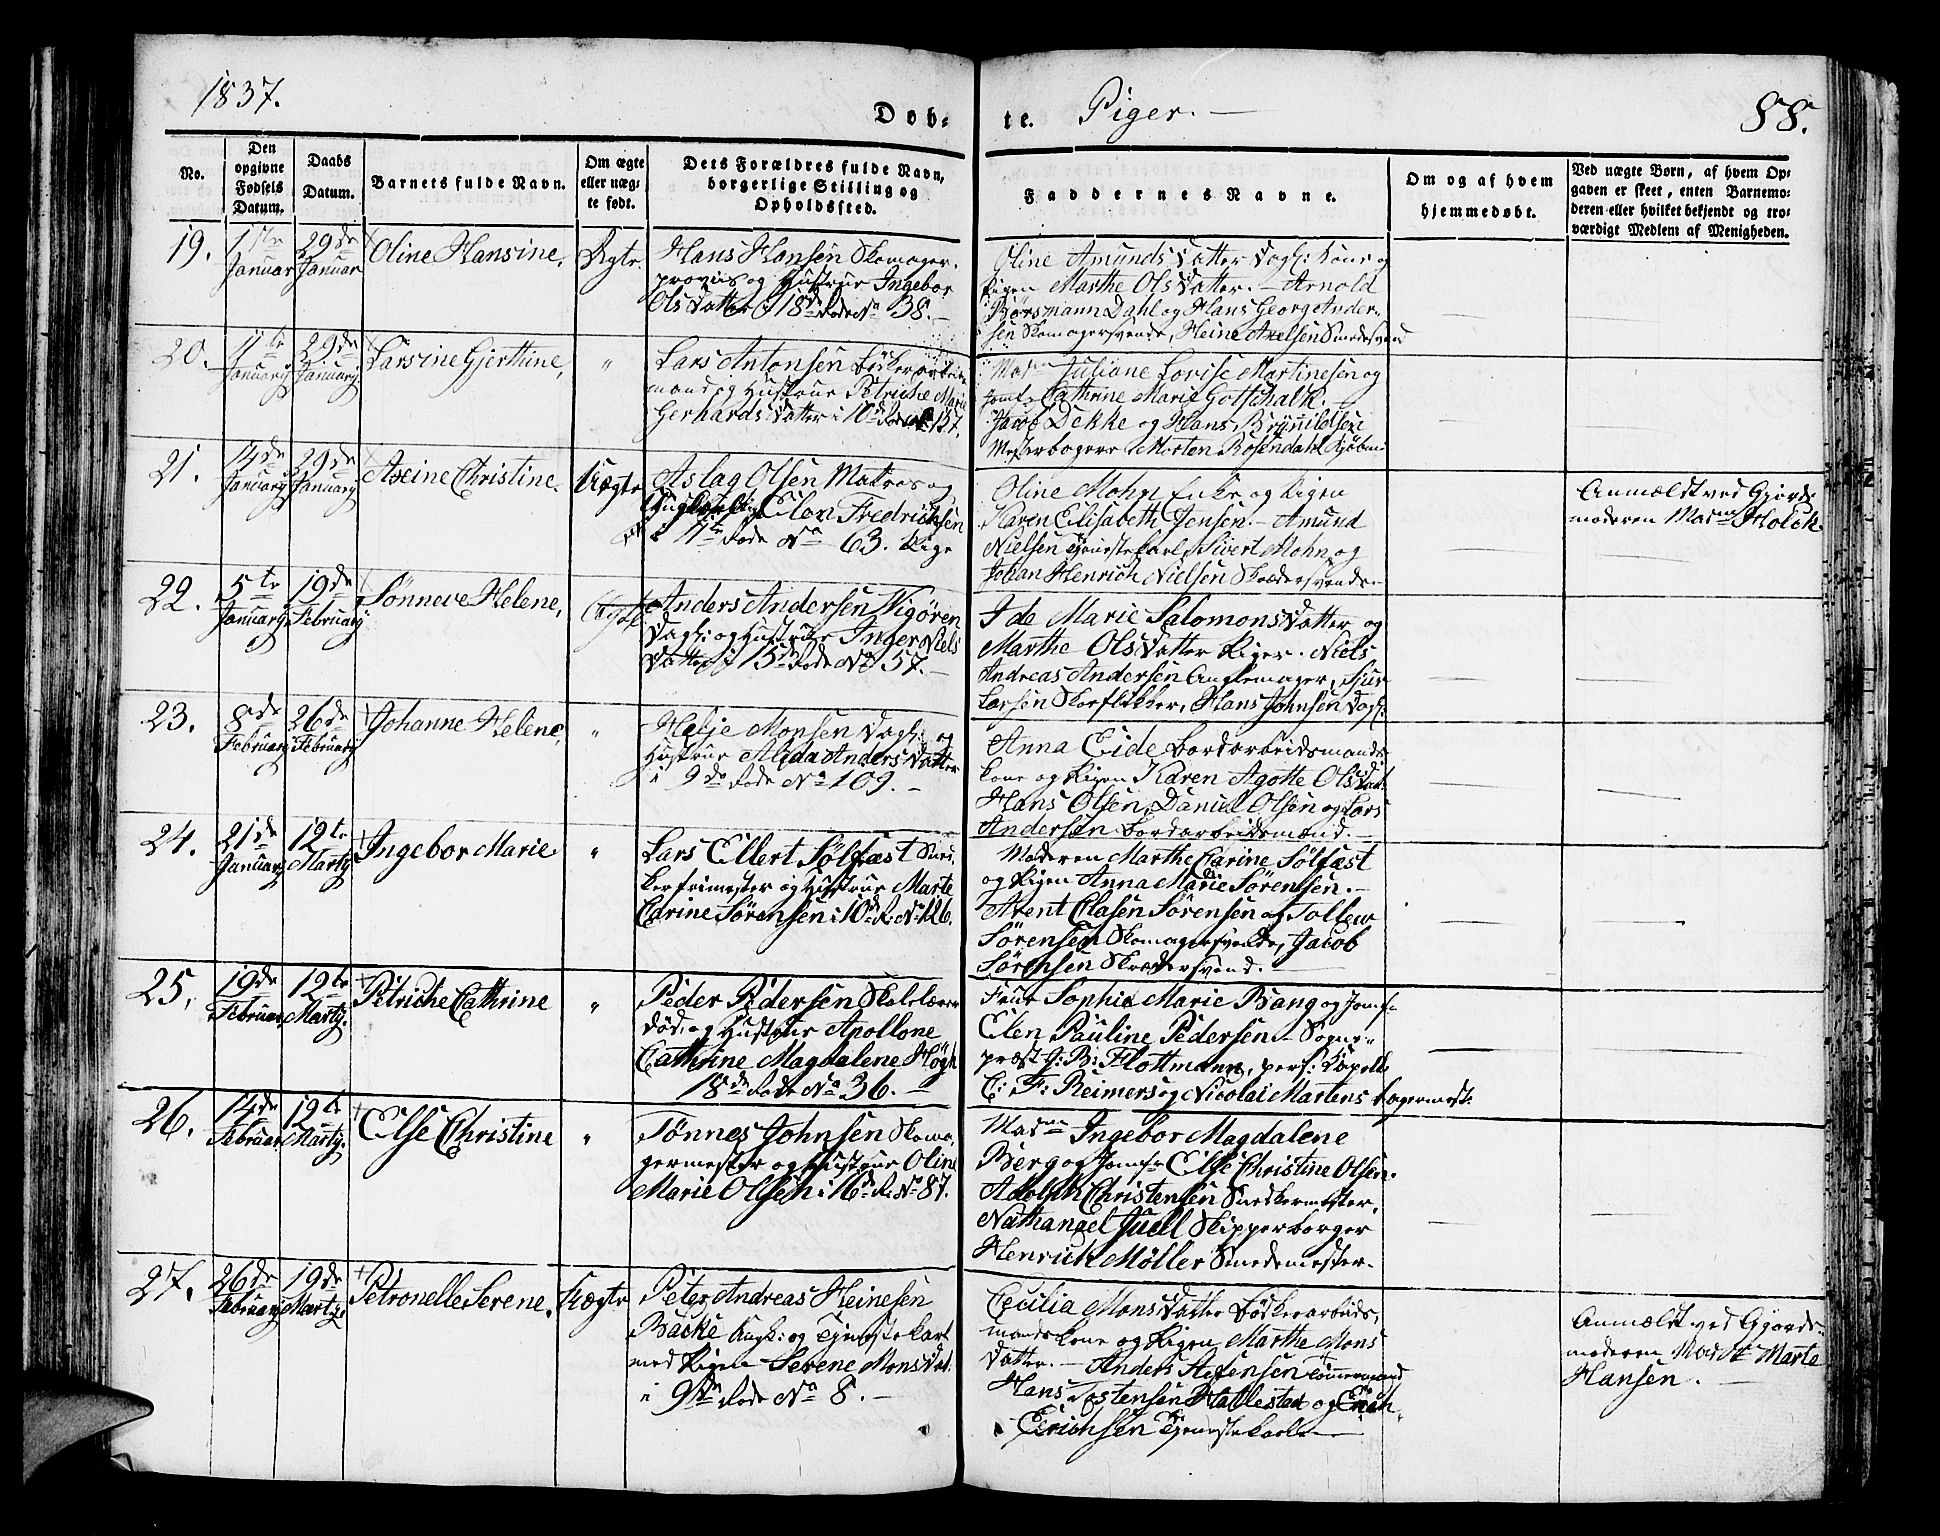 1837.
Døb-
te. Piger. —
88.
No.
Den
opgivne
Fødsels
Datum.
Daabs
Datum.
Barnets fulde Navn.
Om ægte
eller uæg-
te født.
Dets Forældres fulde Navn,
borgerlige Stilling og
Opholdssted.
Faddernes Navne.
Om og af hvem
hjemmedøbt.
Ved uægte Børn, af hvem Op-
gaven er skeet, enten Barnemo-
deren eller hvilket bekjendt og tro-
værdigt Medlem af Menigheden.
19.
1ste
Januar
29de
Januar
Oline Hansine,
Ægte.
Hans Hansen Skomager-
og Hustrue Ingebor
Olsdatter i 18de Rode No 38. —
Oline Amundsdatter Dagk: Kone og
Pigen Marthe Olsdatter. — Arnold
Børsmann Dahl og Hans Georg Ander-
sen Skomagersvende, Heine Axelsen Smedesvend
20.
29de
Januarij
Januarij
Larsine Gjerthine,
"
Lars Antonsen Bødkerarbeids
mand og Hustrue Petriche Marie
Gerhardsdatter i 10de Rode No 127.
Madm Juliane Lovise Martinesen og
Jomf. Cathrine Marie Gotschalk. —
Jacob Dekke og Hans Brynildsen
Morten Rosendahl
21.
14de
Januarij
29de
Januarij
Axeine Christine.
Uægte
Aslag Olsen Matros og
Elen Fredrichsen
i Rode No 63. Pige
Oline Mohn Enke og Pigen
Karen Elisabeth Jensen. — Amund
Nielsen Tjenestekarl, Sivert Mohn og
Johan Henrich Nielsen Skrædersvende.
Anmældt ved Gjords-
moderen Madm Holck.
22.
5te
Januarij
19de
Februarij
Sønneve Helene,
Ægte
Anders Andersen Vigören
Dagk: og Hustrue Inger Niels
Datter i 15de Rode No 57. —
Ide Marie Salomonsdatter og
Marthe Olsdatter Piger. Niels
Andreas Andersen Anglemager, Sjur
Larsen Skoflikker, Hans Johnsen Dagk:
23.
8de
Februarij
26de
Februarij
Johanne Helene,
"
Helje Monsen Dagk: og
Hustrue Alida Andersdatter
i 9de Rode No 109. —
Anna Eide Bordarbeidsmands
Kone og Pigen Karen Agotte Olsdat.
Hans Olsen, Daniel Olsen og Lars
Andersen Bordarbeidsmænd. —
24.
21de
Januarij
12te
Martij
Ingebor Marie
"
Lars Ellert Sølfæst Sned-
kerfrimester og Hustrue Marte
Carine Sørensen i 10de R. No 126.
Moderen Marthe Carine Sølfæst
og Pigen Anna Marie Sørensen. —
Arent Clasen Sørensen og Tollew
Sørensen Skomagersvende, Jacob
Sørensen Skrædersvend. —
25.
19de
Februar
12te
Martij.
Petriche Cathrine
"
Peder Pedersen Skolelærer
død, og Hustrue Apollone
Cathrine Magdalene Høgh
18de Rode No 36. —
Frue Sophie Marie Bang og Jomf-
Elen Pauline Pedersen — Sogne-
præst J: B: Flottmann, pers: Kapell.
C: F: Reimers og Nicolai Martens Bagermest.
26.
14de
Februar.
12te
Martij.
Else Christine
"
Tönnes Johnsen Skoma-
germester og Hustrue Oline
Marie Olsen i 16de R. No 87.
Madm Ingebor Magdalene
Berg og Jomf. Else Christine Olsen.
Adolph Christensen Snedkermester,
Nathanael Juell Skipperborger
Henrich Møller Smedemester.
27.
26de
Februarij
19de
Martij.
Petronelle Serene.
Uægte
Peter Andreas Heinesen
Backe Ungk: og Tjenestekarl
med Pigen Serene Monsdat.
i 9de Rode No 8. —
Cecilia Monsdatter Bødkerarbeids-
mands Kone og Pigen Marthe Mons
Datter. — Anders Tømmermand
Hans Tostensen Hallested og Erich
Erichsen Tjenestekarle —
Anmældt ved Gjords-
moderen Marte
Hansen. —